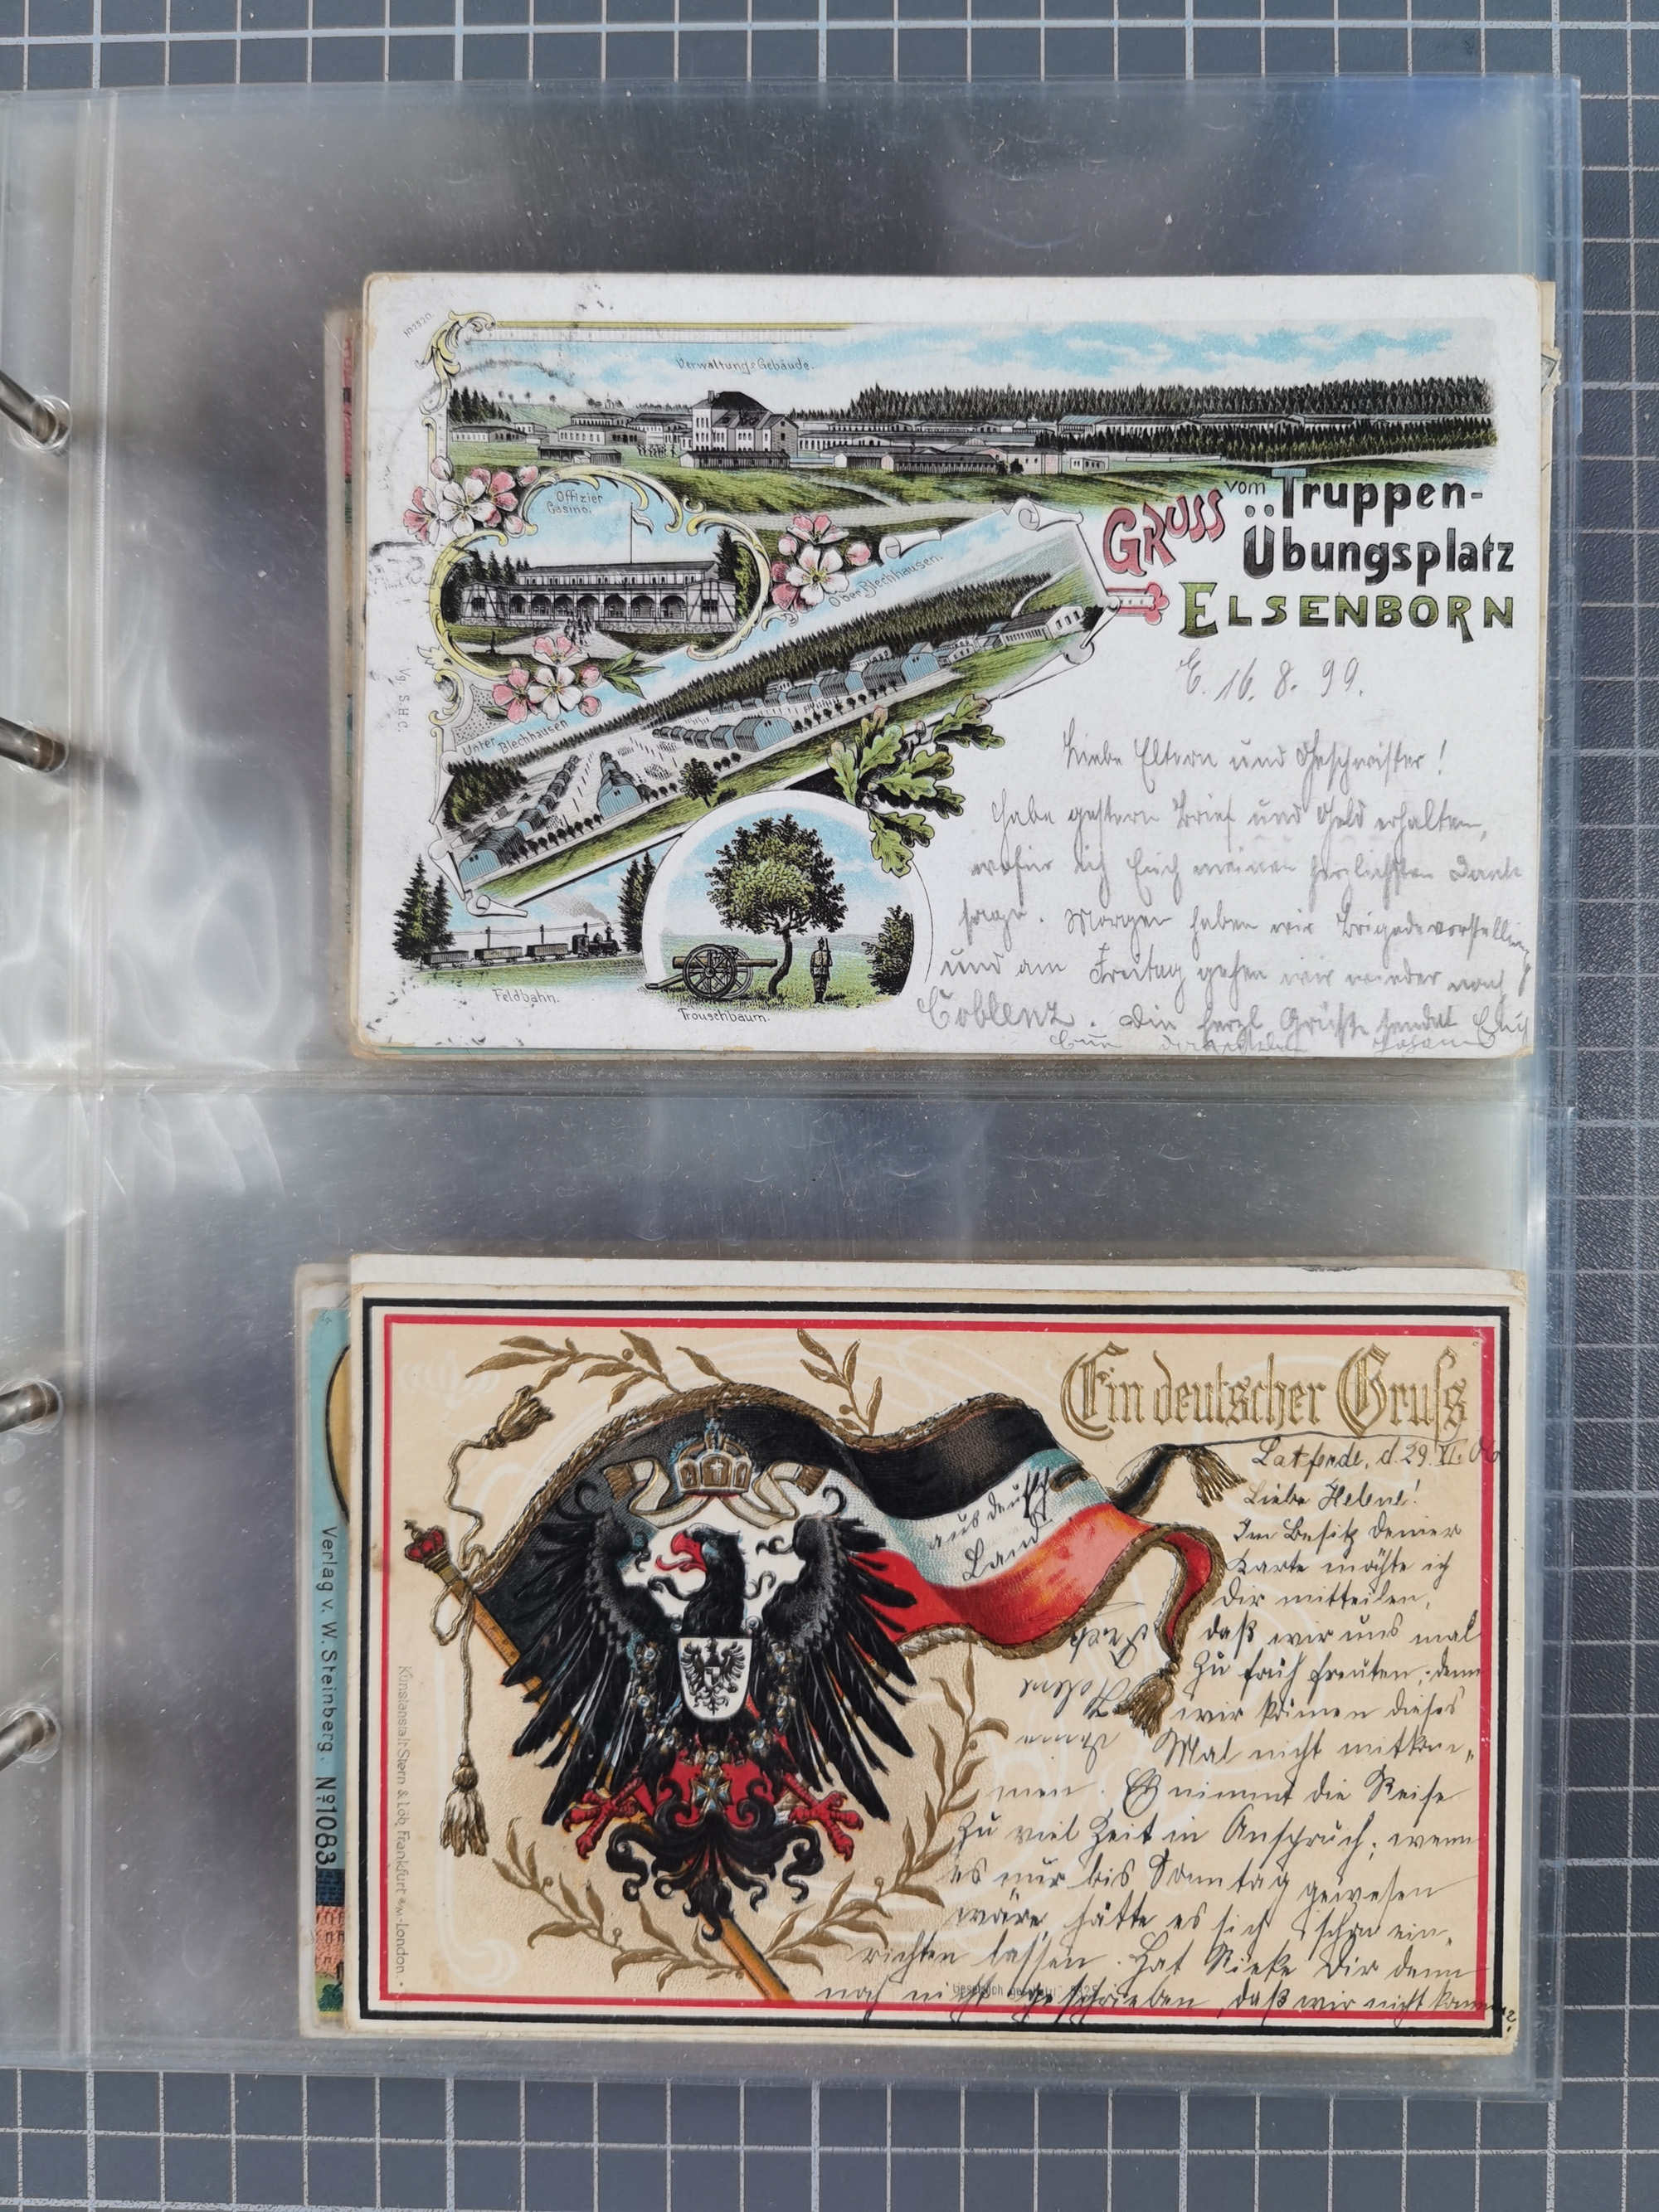 102520
Verwaltungs Gebäude.
Offizier
Casino.
Gruss vom Truppen-
Übungsplatz
Elsenborn
Ober Blechhausen.
Unter Blechhausen
Vg. S.H.C.
Feldbahn.
Trouschbaum.
E. 16. 8. 99.
Liebe Eltern und Geschwister!
Habe gestern Brief und Geld erhalten,
wofür ich Euch meinen herzlichsten Dank
sage. Morgen haben wir Brigadevorstellung
und am Freitag gehen wir wieder nach
Coblenz. Die herzl. Grüße sendet Euch
Ein deutscher Gruss
d. 29. VI. 06
Liebe Helene!
Im Besitz Deiner
Karte möchte ich
Dir mitteilen,
daß wir uns mal
zu früh freuten; denn
wir können dieses
Mal nicht mitkom-
men. Es nimmt die Reise
zu viel Zeit in Anspruch; wenn
es nur bis Sonntag gewesen
wäre, hätte es sich schon ein-
richten lassen. Hat Dir denn
noch nicht geschrieben, daß wir nicht kommen?
aus deutsch
Land
Helene
Kunstanstalt Stern & Löb, Frankfurt a/M.-London.
Verlag v. W. Steinberg. No 1083